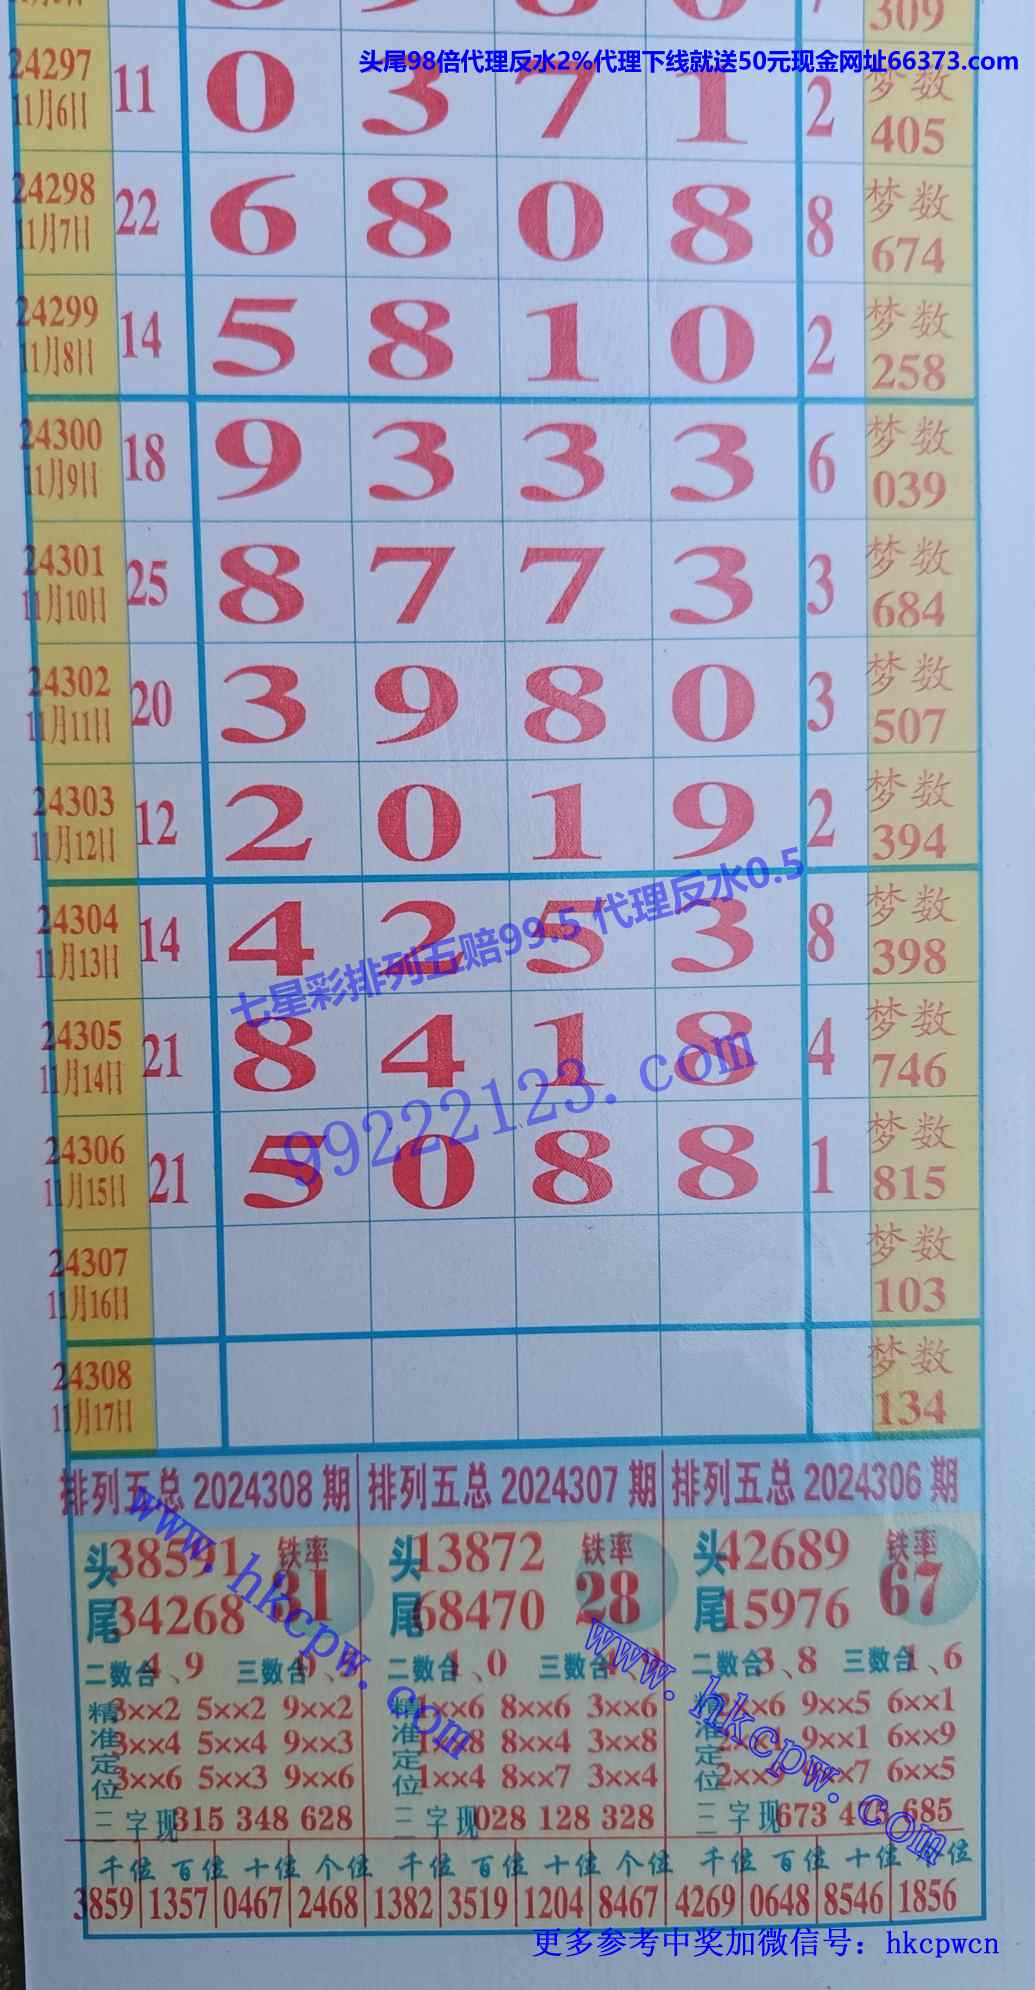 309
头尾98倍代理反水2%代理下线就送50元现金网址66373.com
24297 11月6日 11 0 3 7 1 2 梦数 405
24298 11月7日 22 6 8 0 8 8 梦数 674
24299 11月8日 14 5 8 1 0 2 梦数 258
24300 11月9日 18 9 3 3 3 6 梦数 039
24301 11月10日 25 8 7 7 3 3 梦数 684
24302 11月11日 20 3 9 8 0 3 梦数 507
24303 11月12日 12 2 0 1 9 2 梦数 394
24304 11月13日 14 4 2 5 3 8 梦数 398
七星彩排列五赔99.5 代理反水0.5
24305 11月14日 21 8 4 1 8 4 梦数 746
99222123.com
24306 11月15日 21 5 0 8 8 1 梦数 815
24307 11月16日 梦数 103
24308 11月17日 梦数 134
排列五总 2024308 期 排列五总 2024307 期 排列五总 2024306 期
头38591 铁率 头13872 铁率 头42689 铁率
尾34268 31 尾68470 28 尾15976 67
www.hkcpw.com
www.hkcpw.com
二数合4、9 三数合 二数合1、0 三数合 二数合3、8 三数合1、6
精准定位 3××2 5××2 9××2 精准定位 1××6 8××6 3××6 精准定位 2××6 9××5 6××1
3××4 5××4 9××3 8××4 3××8 9××1 6××9
3××6 5××3 9××6 1××4 8××7 3××4 6××5
三字现315 348 628 三字现028 128 328 三字现673 475 685
千位 百位 十位 个位 千位 百位 十位 个位 千位 百位 十位 个位
3859 1357 0467 2468 1382 3519 1204 8467 4269 0648 8546 1856
更多参考中奖加微信号：hkcpwcn